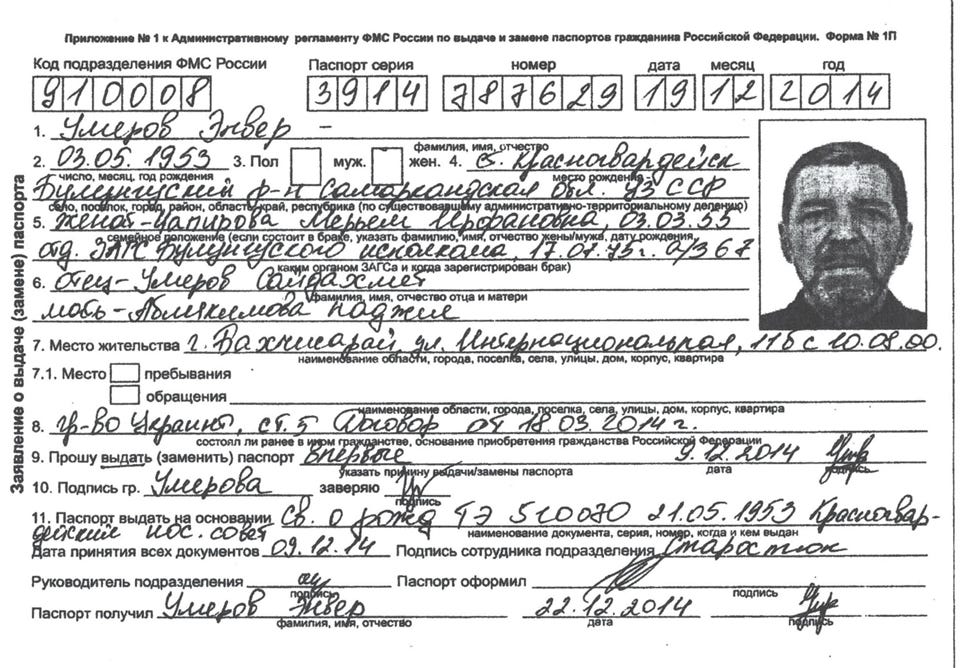 Приложение № 1 к Административному регламенту ФМС России по выдаче и замене паспортов гражданина Российской Федерации. Форма № 1П
Код подразделения ФМС России Паспорт серия номер дата месяц год
910008 3914 787629 19 12 2014
1. Умеров Энвер -
фамилия, имя, отчество
2. 03.05.1953 3. Пол муж. жен. 4. с. Красногвардейск
число, месяц, год рождения место рождения -
Булунгуский р-н Самаркандская обл. УзССР
село, поселок, город, район, область/край, республика (по существовавшему административно-территориальному делению)
5. женат - Чапирова Мерьем Ирфановна, 03.03.55
семейное положение (если состоит в браке, указать фамилию, имя, отчество жены/мужа, дату рождения,
отд. ЗАГС Булунгуского исполкома, 17.07.75г. 0/367
каким органом ЗАГСа и когда зарегистрирован брак)
6. отец - Умеров Сайдахмет
фамилия, имя, отчество отца и матери
мать - Абликимова Наджие
7. Место жительства г. Бахчисарай, ул. Интернациональная, 11б с 10.08.00.
наименование области, города, поселка, села, улицы, дом, корпус, квартира
7.1. Место пребывания
обращения
наименование области, города, поселка, села, улицы, дом, корпус, квартира
8. гр-во Украины, ст. 5 Договор от 18.03.2014 г.
состоял ли ранее в ином гражданстве, основание приобретения гражданства Российской Федерации
9. Прошу выдать (заменить) паспорт впервые 9.12.2014
указать причину выдачи/замены паспорта дата подпись
10. Подпись гр. Умерова заверяю
подпись
11. Паспорт выдать на основании Св. о рожд ГЭ 510070 21.05.1953 Красногвар-
наименование документа, серия, номер, когда и кем выдан
дейским пос. совет
Дата принятия всех документов 09.12.14 Подпись сотрудника подразделения Старостюк
Руководитель подразделения Паспорт оформил
подпись подпись
Паспорт получил Умеров Энвер 22.12.2014
фамилия, имя, отчество дата подпись
Заявление о выдаче (замене) паспорта